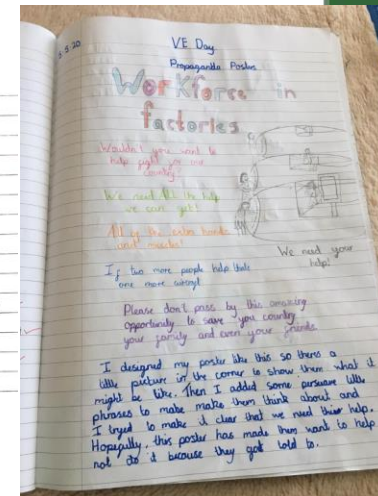 5.5.20
VE Day
Propaganda Poster
Workforce in
factories
Wouldn't you want to
help fight for our
country?
We need all the help
we can get!
All of the extra hands
and muscles!
We need your
help!
If two more people help thats
one more
Please don't pass by this amazing
opportunity to save you country
your family and even your friends.
I designed my poster like this so theres a
little picture in the corner to show them what it
might be like. Then I added some persuave little
phrases to make make them think about and
I tryed to make it clear that we need their help.
Hopefully, this poster has made them want to help
not do it because they got told to.